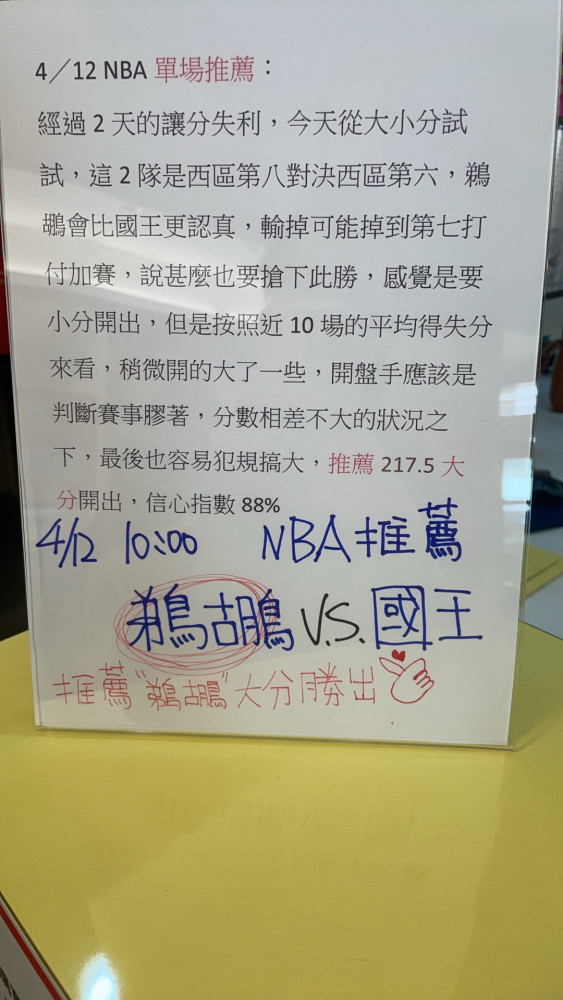 4／12 NBA 單場推薦：
經過 2 天的讓分失利，今天從大小分試
試，這 2 隊是西區第八對決西區第六，鵜
鶘會比國王更認真，輸掉可能掉到第七打
付加賽，說甚麼也要搶下此勝，感覺是要
小分開出，但是按照近 10 場的平均得失分
來看，稍微開的大了一些，開盤手應該是
判斷賽事膠著，分數相差不大的狀況之
下，最後也容易犯規搞大，推薦 217.5 大
分開出，信心指數 88%
4/12 10:00 NBA推薦
鵜鶘 V.S. 國王
推薦"鵜鶘"大分勝出